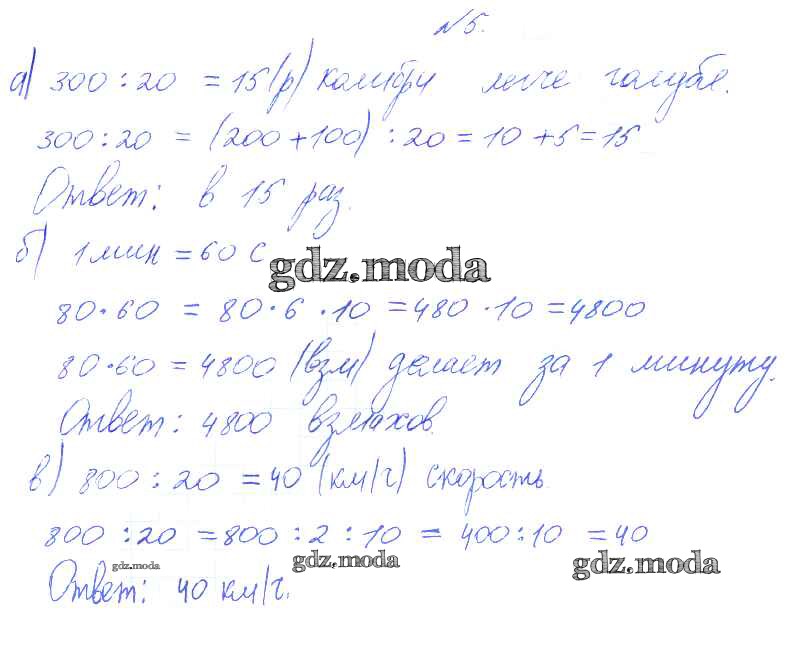 №5.
а) 300 : 20 = 15 (р) колибри легче голубя.
300 : 20 = (200 + 100) : 20 = 10 + 5 = 15
Ответ: в 15 раз.
б) 1 мин = 60 с
gdz.moda
80 · 60 = 80 · 6 · 10 = 480 · 10 = 4800
80 · 60 = 4800 (взм) делает за 1 минуту.
Ответ: 4800 взмахов.
в) 800 : 20 = 40 (км/ч) скорость
800 : 20 = 800 : 2 : 10 = 400 : 10 = 40
gdz.moda gdz.moda gdz.moda
Ответ: 40 км/ч.